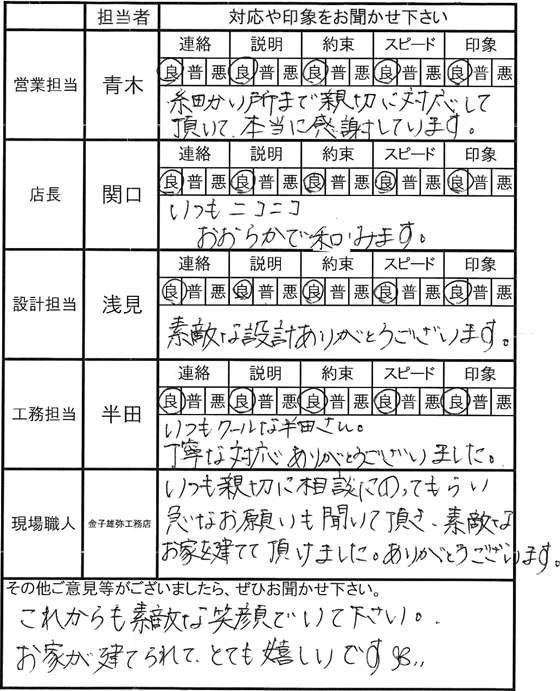 担当者 対応や印象をお聞かせ下さい
営業担当 青木 連絡 説明 約束 スピード 印象
良 普 悪 良 普 悪 良 普 悪 良 普 悪 良 普 悪
細かい所まで親切に対応して
頂いて、本当に感謝しています。
店長 関口 連絡 説明 約束 スピード 印象
良 普 悪 良 普 悪 良 普 悪 良 普 悪 良 普 悪
いつもニコニコ
おおらかで和みます。
設計担当 浅見 連絡 説明 約束 スピード 印象
良 普 悪 良 普 悪 良 普 悪 良 普 悪 良 普 悪
素敵な設計ありがとうございます。
工務担当 半田 連絡 説明 約束 スピード 印象
良 普 悪 良 普 悪 良 普 悪 良 普 悪 良 普 悪
いつもクールな半田さん。
丁寧な対応ありがとうございました。
現場職人 金子雄弥工務店
いつも親切に相談にのってもらい
急なお願いも聞いて頂き、素敵な
お家を建てて頂けました。ありがとうございます。
その他ご意見等がございましたら、ぜひお聞かせ下さい。
これからも素敵な笑顔でいて下さい。
お家が建てられて、とても嬉しいです